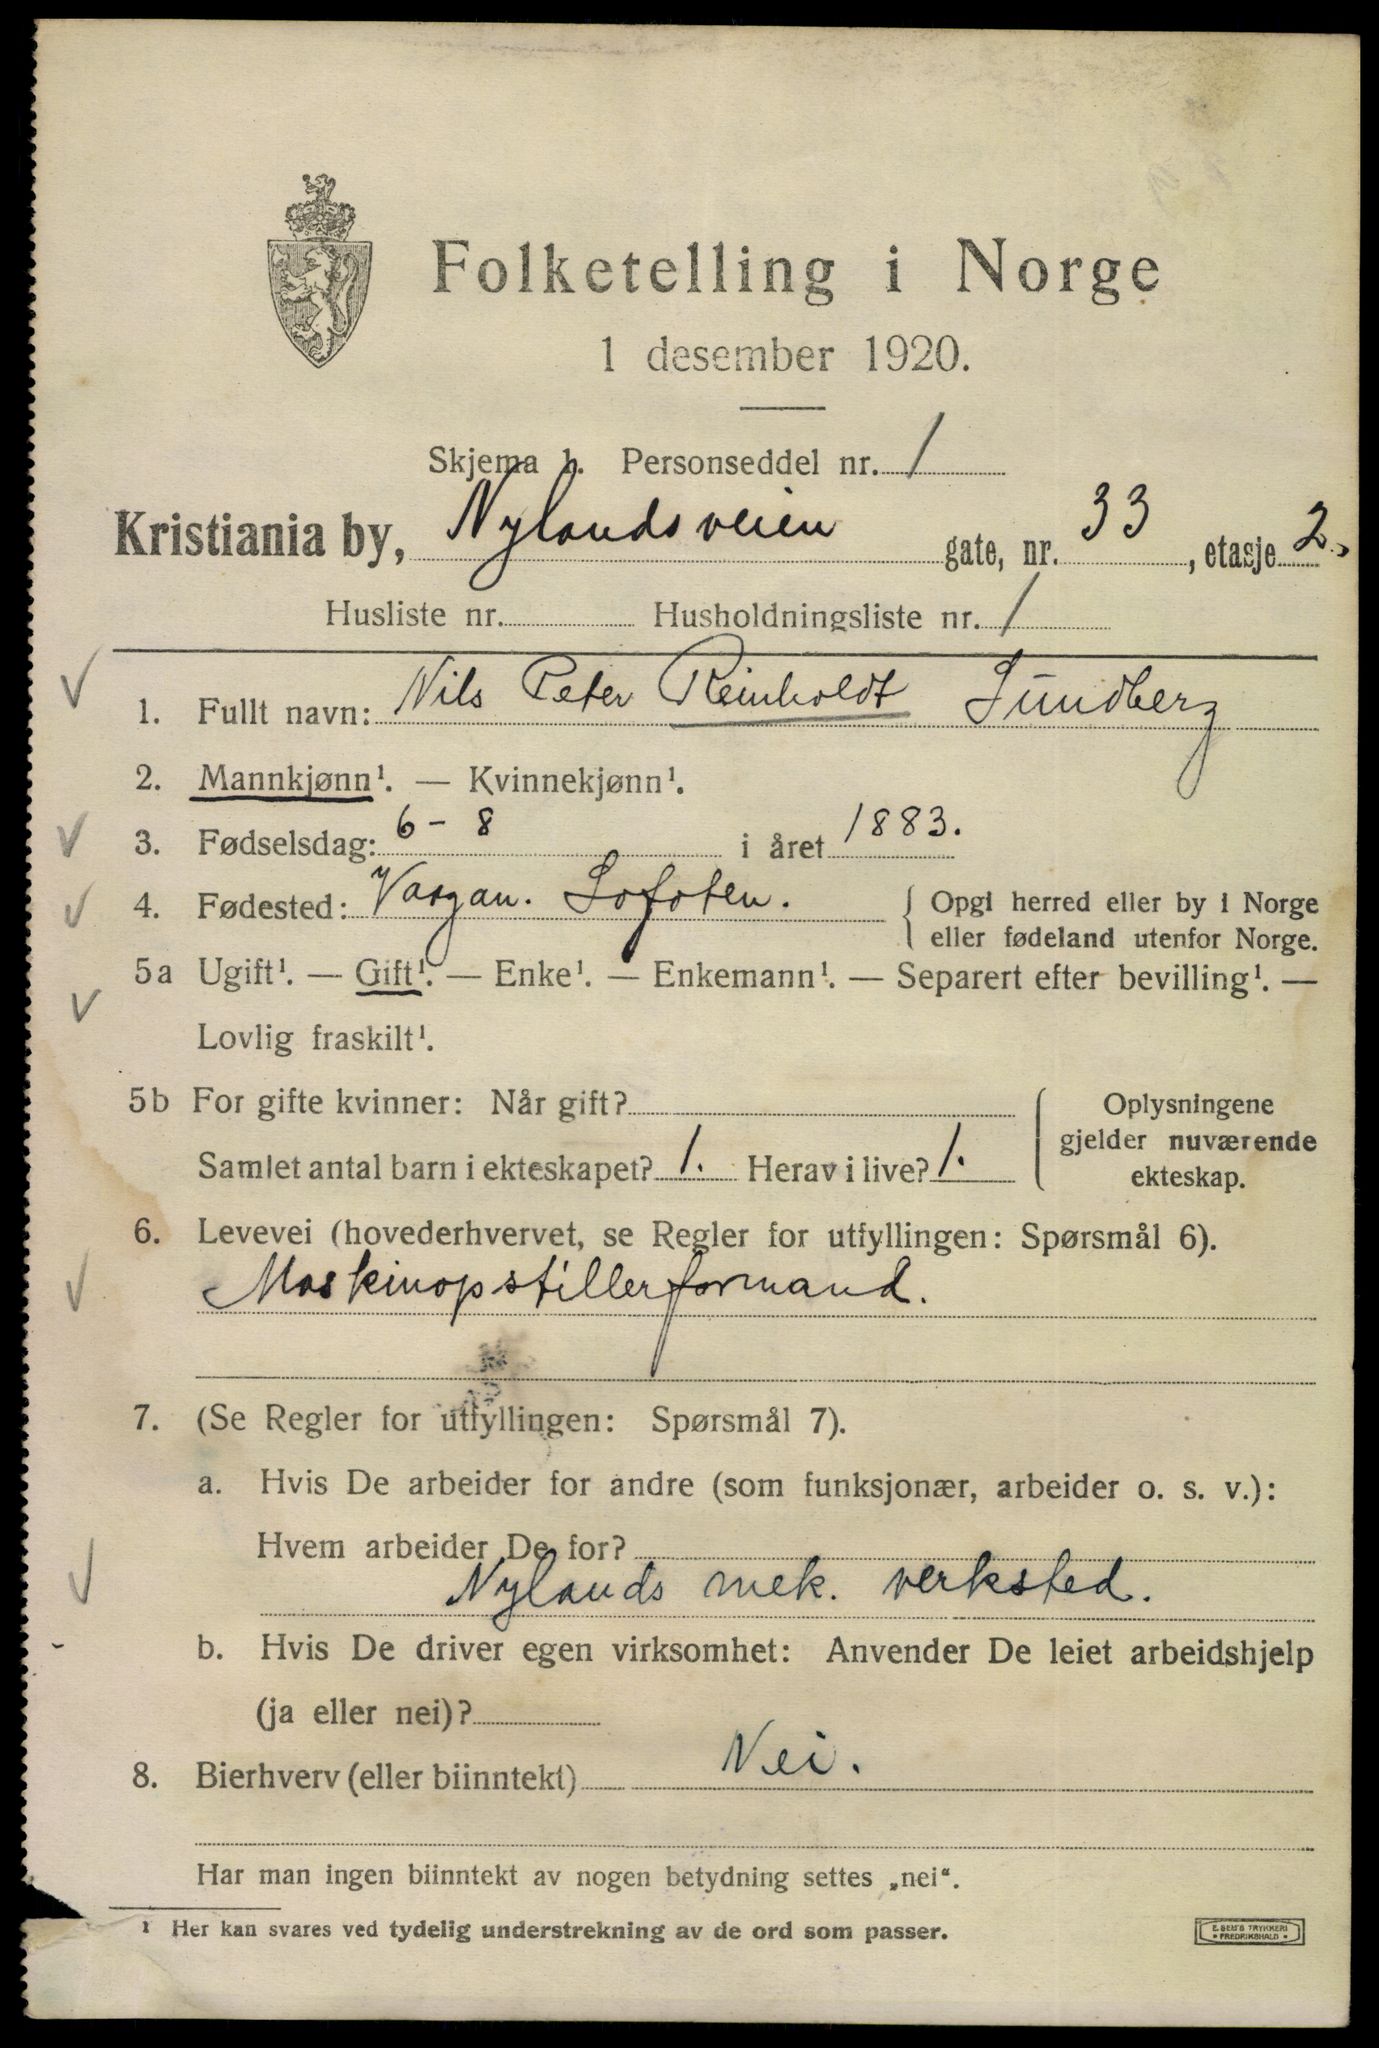 Folketelling i Norge
1 desember 1920.
Skjema 1. Personseddel nr. 1
Kristiania by, Nylandsveien gate, nr. 33, etasje 2.
Husliste nr. Husholdningsliste nr. 1
1. Fullt navn: Nils Peter Reinholdt Lundberg
2. Mannkjønn¹. — Kvinnekjønn¹.
3. Fødselsdag: 6 - 8 i året 1883.
4. Fødested: Vaagan. Lofoten. Opgi herred eller by i Norge
eller fødeland utenfor Norge.
5a Ugift¹. — Gift¹. — Enke¹. — Enkemann¹. — Separert efter bevilling¹. —
Lovlig fraskilt¹.
5b For gifte kvinner: Når gift? Oplysningene
gjelder nuværende
Samlet antal barn i ekteskapet? 1. Herav i live? 1. ekteskap.
6. Levevei (hovederhvervet, se Regler for utfyllingen: Spørsmål 6).
Maskinopstillerformand.
7. (Se Regler for utfyllingen: Spørsmål 7).
a. Hvis De arbeider for andre (som funksjonær, arbeider o. s. v.):
Hvem arbeider De for?
Nylands mek. verksted.
b. Hvis De driver egen virksomhet: Anvender De leiet arbeidshjelp
(ja eller nei)?
8. Bierhverv (eller biinntekt) Nei.
Har man ingen biinntekt av nogen betydning settes „nei“.
¹ Her kan svares ved tydelig understrekning av de ord som passer.
E. SEM'S TRYKKERI
• FREDRIKSHALD •